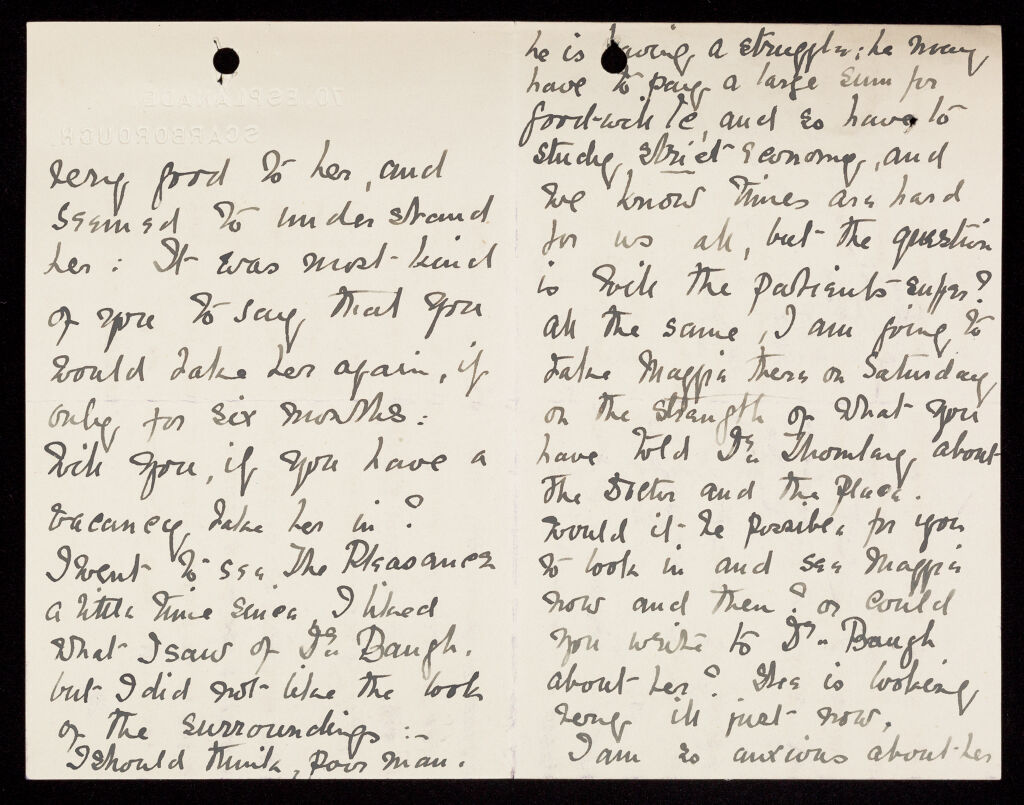 70, ESPLANADE,
SCARBOROUGH.
very good to her, and
seemed to understand
her: It was most kind
of you to say, that you
would take her again, if
only for six months:
Will you, if you have a
vacancy, take her in?
I went to see The Pleasance
a little time since, I liked
what I saw of Dr. Baugh.
but I did not like the look
of the surroundings:-
I should think, poor man.
he is having a struggle; he may
have to pay a large sum for
good-will &c, and so have to
study strict economy, and
we know times are hard
for us all, but the question
is will the patients suffer?
all the same, I am going to
take Maggie there on Saturday
on the strength of what you
have told Dr. Thornley, about
the Doctor and the place.
Would it be possible for you
to look in and see Maggie
now and then? or could
you write to Dr. Baugh
about her? She is looking
very ill just now.
I am so anxious about her